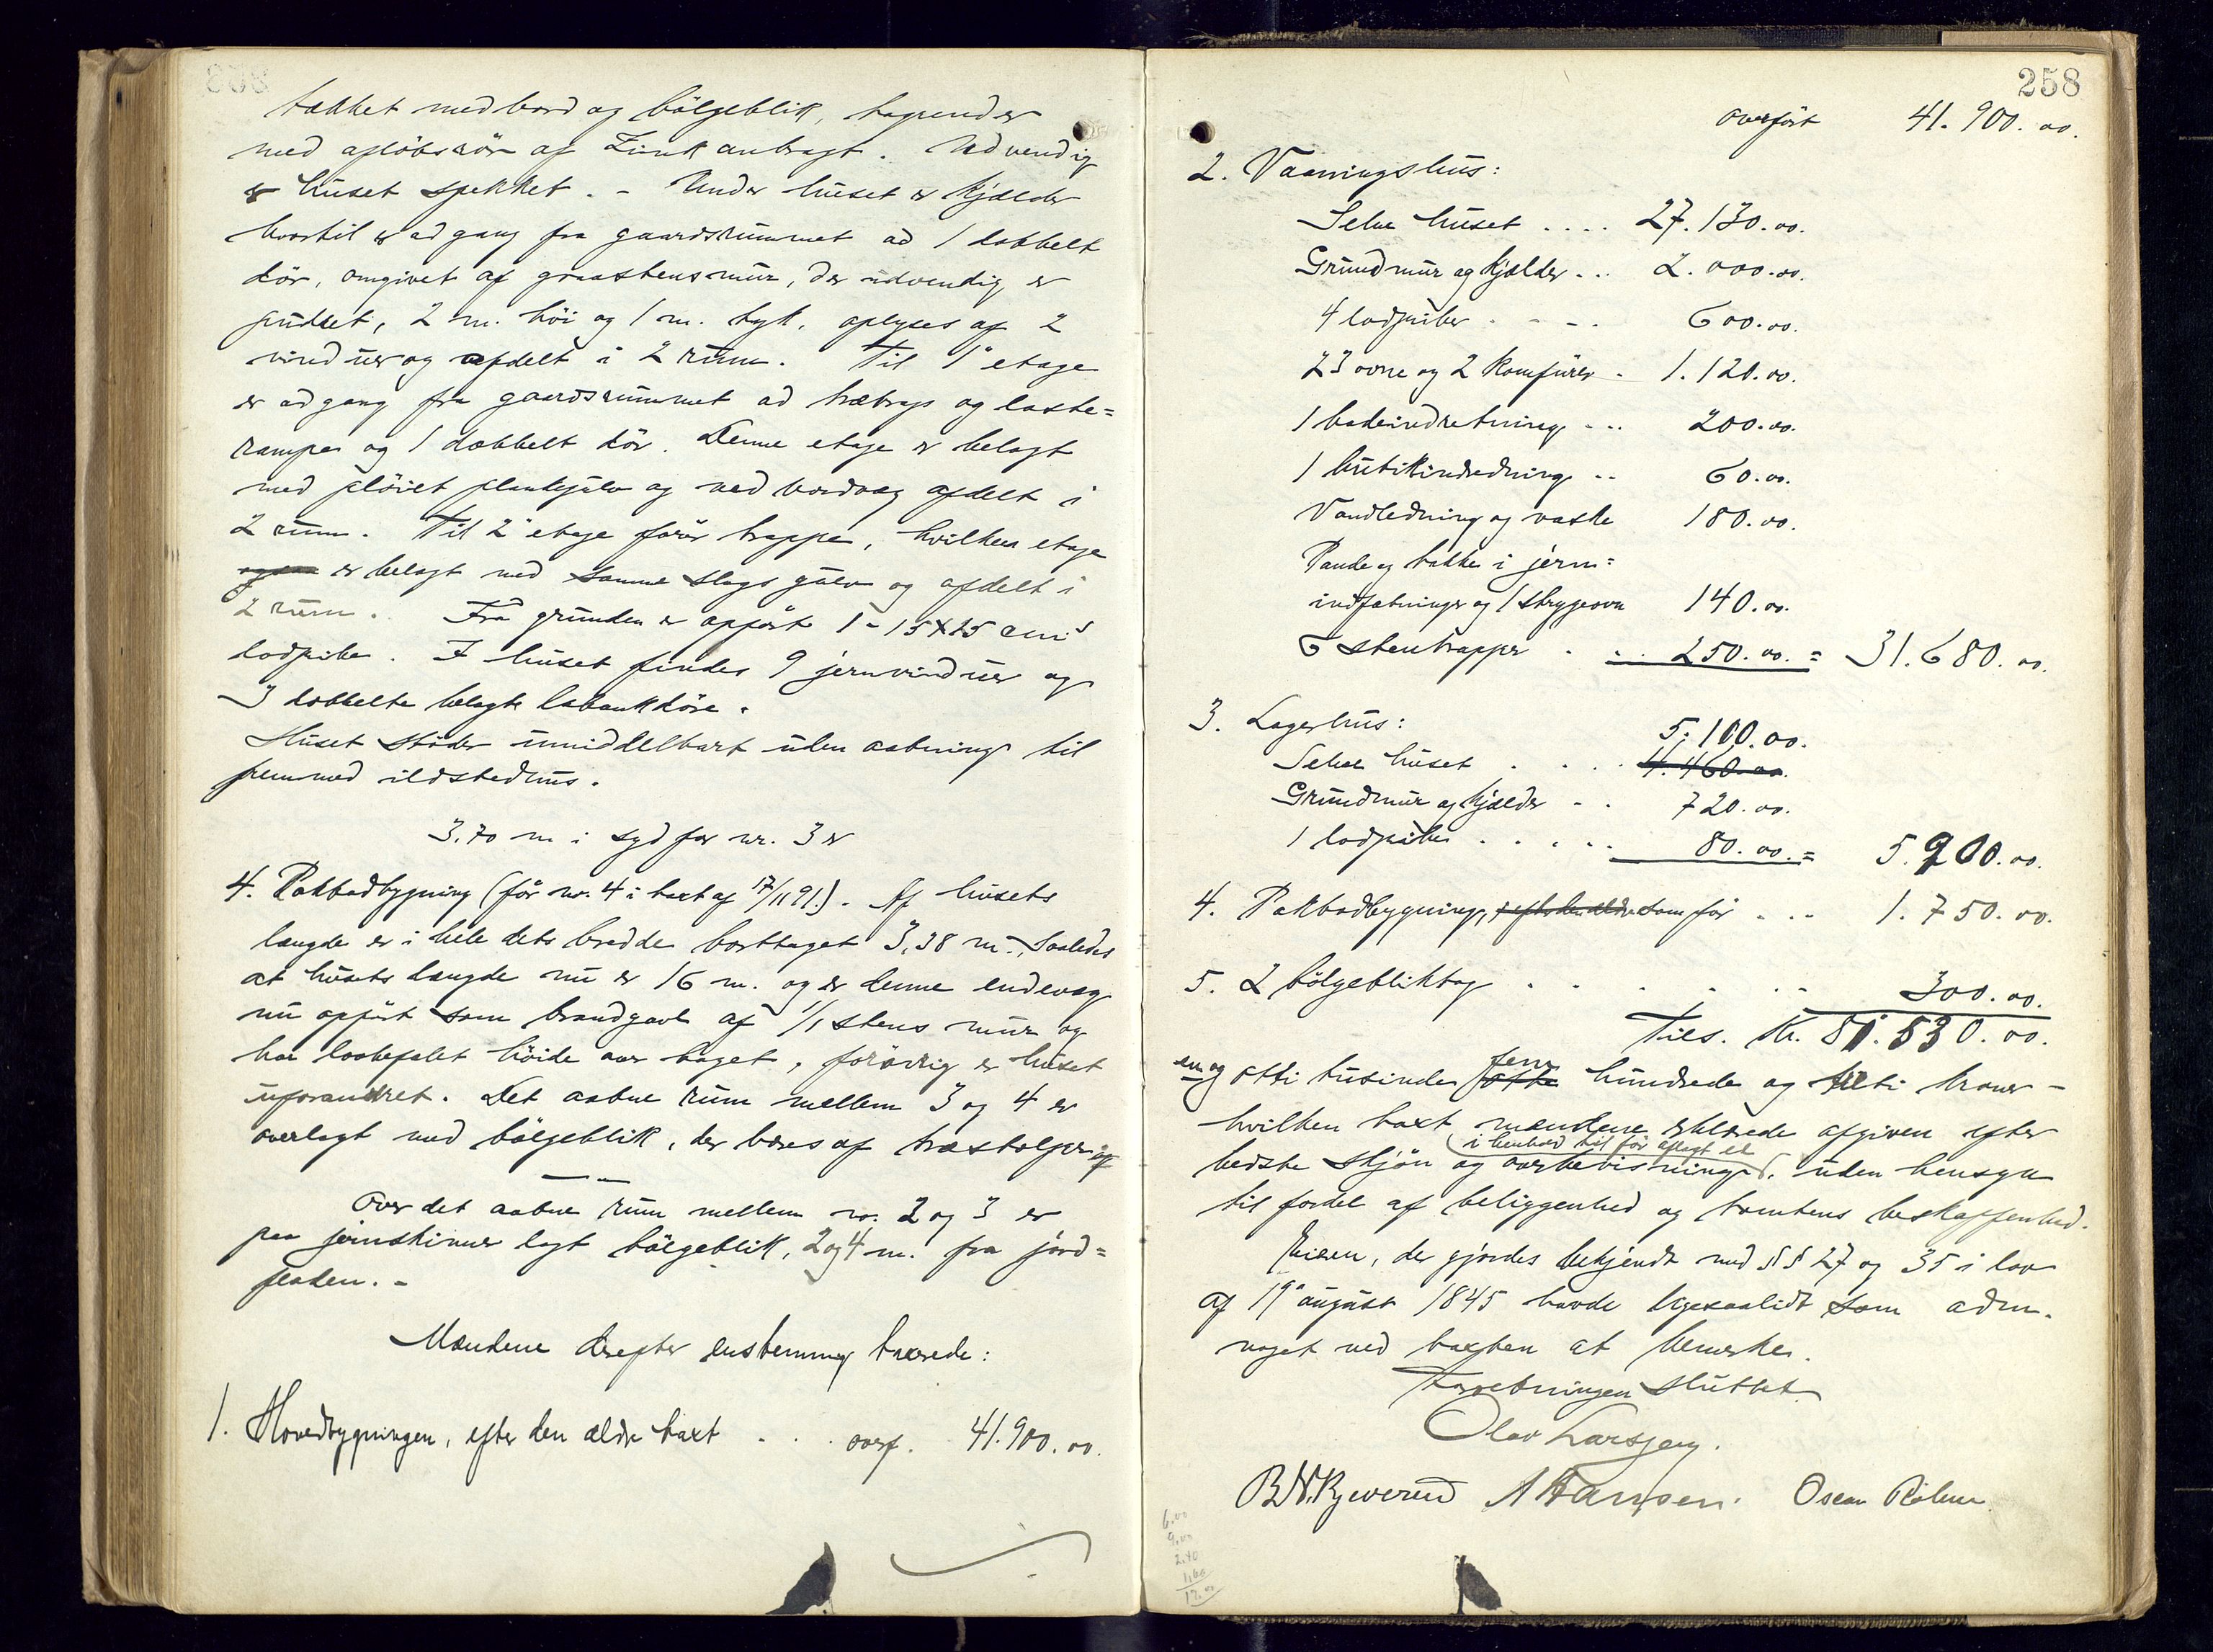 tækket med bord og bölgeblik, tagrender
med aflöbsrör af Zink anbragt. Udvendig
er huset spekket. - Under huset er kjælder
hvortil er adgang fra gaardsrummet ad 1 dobbelt
dör, omgivet af graastensmur, der udvendig er
pudset, 2 m. höi og 1 m. tyk, oplyses af 2
vinduer og afdelt i 2 rum. Til 1' etage
er adgang fra gaardsrummet ad trætrap og laste=
rampe og 1 dobbelt dör. Denne etage er belagt
med plöiet plankgulv og ved bordvæg afdelt i
2 rum. Til 2' etage förer trappe, hvilken etage
er belagt med samme slags gulv og afdelt i
2 rum. Fra grunden er opfört 1 - 15 x 25 cm's
lodpibe. I huset findes 9 jernvinduer og
3 dobbelte belagte labankdöre.
Huset stöder umiddelbart uden aabning til
fremmed ildstedhus.
3.70 m i syd for nr. 3 er
4. Pakbodbygning (för nr. 4 i taxt af 17/11 91.). Af husets
længde er i hele dets bredde borttaget 3,38 m., saaledes
at husets længde nu er 16 m. og er denne endevæg
nu opfört som brandgavl af 1/1 stens mur og
har lovbefalet höide over taget, forövrig er huset
uforandret. Det aabne rum mellem 3 og 4 er
overlagt med bölgeblik, der bæres af træstolper
Over det aabne rum mellem nr. 2 og 3 er
paa jernskinner lagt bölgeblik, 2 og 4 m. fra jord=
fladen. -
Mændene derefter enstemmig taxerede:
1. Hovedbygningen, efter den ældre taxt . . . overf. 41.900.00.
258
overfört 41.900.00.
2. Vaaningshus:
Selve huset .... 27.130.00.
Grundmur og kjælder ... 2.000.00.
4 lodpiber . - - . 600.00.
23 ovne og 2 komfürer . 1.120.00.
1 badeindretning ... 200.00.
1 butikindredning .. 60.00.
Vandledning og vaske 180.00.
Pande og bakke i jern=
indfatninger og 1 strygeovn 140.00.
6 stentrapper . . . 250.00. = 31.680.00.
3. Lagerhus:
5.100.00.
Selve huset . . . . 4.460.00.
Grundmur og kjælder - . 720.00.
1 lodpibe . . . . . 80.00. = 5.900.00.
4. Pakbodbygning, efter den ældre som för . . . 1.750.00.
5. 2 bölgebliktag . . . . . . 300.00.
Tils. Kr. 81.530.00.
en og otti tusinde otte fem hundrede og tretti kroner -
hvilken taxt mændene erklærede afgiven efter
i henhold til för aflagt ed
bedste skjön og overbevisning, uden hensyn
til fordel af beliggenhed og tomtens beskaffenhed.
Eieren, der gjordes bekjendt med §§ 27 og 35 i lov
af 19' august 1845 havde ligesaalidt som adm.
noget ved taxten at bemerke.
Forretningen sluttet.
Olav Larsgang.
B.N. Kjeverud A Hansen. Oscar Röhne
6.00
9.00
2.40
1,60
19.00